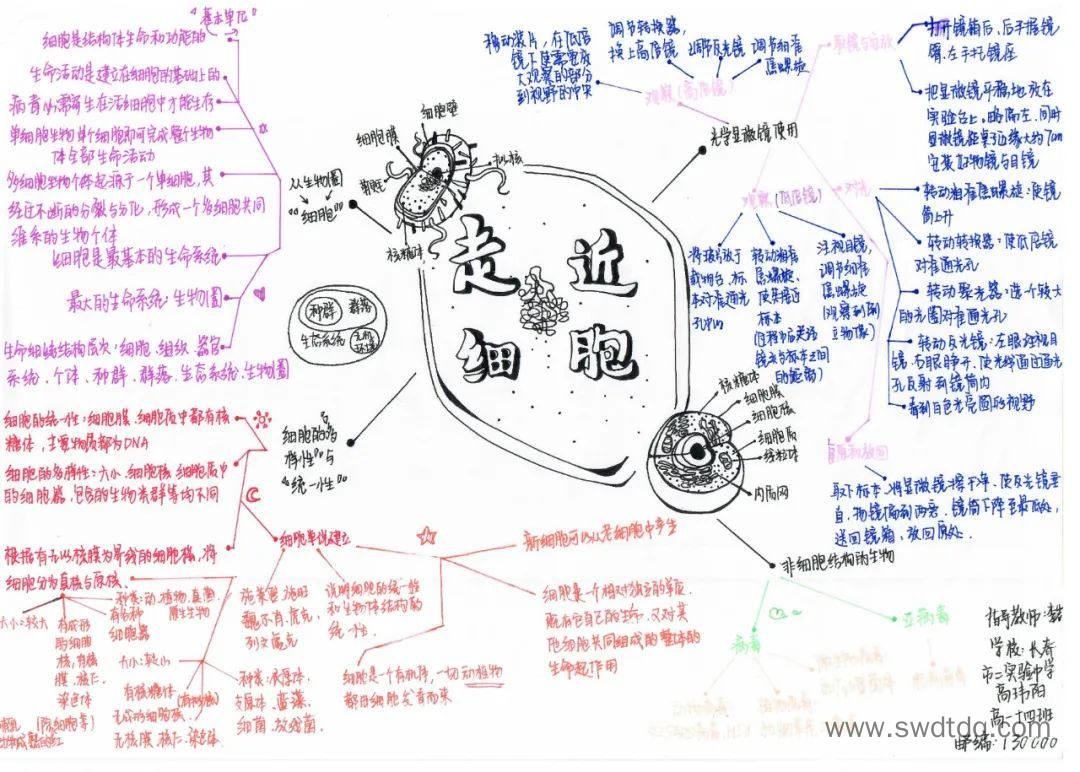 "基本单位"
细胞是结构体生命和功能的
生命活动是建立在细胞的基础上的
病毒必需寄生在活细胞中才能生存
单细胞生物单个细胞即可完成整个生物
体全部生命活动
多细胞生物个体起源于一个单细胞,其
经过不断的分裂与分化,形成一个发细胞共同
维系的生物个体
细胞是最基本的生命系统
最大的生命系统:生物圈
生命细统结构层次:细胞.组织.器官
系统.个体.种群.群落.生态系统.生物圈
从生物圈
"细胞"
细胞壁
细胞膜
拟核
核糖体
种群
群落
生态系统
无机环境
走近
细胞
移动装片,在低倍
镜下使需要放
大观察的部分
到视野的中央
调节转换器,
换上高倍镜
调节反光镜
调节细准
焦螺旋
观察(高倍镜)
光学显微镜使用
取镜与安放
打开镜箱后,右手握镜
臂,左手托镜座
把显微镜平稳地放在
实验台上,略偏左,同时
显微镜距桌子边缘大约7cm
安装好物镜与目镜
观察(低倍镜)
对光
转动粗准焦螺旋:使镜
筒上升
转动转换器:使低倍镜
对准通光孔
转动聚光器:选个较大
的光圈对准通光孔
转动反光镜:左眼注视目
镜,右眼睁开,使光线通过通光
孔反射到镜筒内
看到白色光亮圆的视野
将玻片放于
载物台,标
本对准通光
孔中心
转动粗准
焦螺旋,
使其接近
标本
注视目镜,
调节细准
焦螺旋
(观察到刚
立物像)
取下标本,将显微镜擦干净,使反光镜垂
直,物镜偏到两旁,镜筒下降至最低处,
送回镜箱,放回原处.
核糖体
细胞膜
细胞核
细胞质
线粒体
内质网
细胞的多
样性"与
"统一性"
细胞的统一性:细胞膜.细胞质中都有核
糖体,主要物质都为DNA
细胞的多样性:大小.细胞核.细胞质中
的细胞器,包含的生物类群等均不同
根据有无以核膜为界线的细胞核,将
细胞分为真核与原核.
大小:较大
有成形
的细胞
核,有核
膜.核仁.
染色体
种类:动.植物.真菌
原生生物
有各种
细胞器
大小:较小
有核糖体
无成形细胞核.
无核膜.核仁.染色体.
种类:衣原体.
支原体.蓝藻.
细菌.放线菌.
细胞学说建立
施莱登.施旺
魏尔肖.虎克.
列文虎克
说明细胞的统一性
和生物体结构的
统一性.
细胞是一个有机体,一切动植物
都由细胞发育而来
新细胞可以从老细胞中产生
细胞是一个相对独立的单位,
既有它自己的生命,又对其
他细胞共同组成的整体的
生命起作用
非细胞结构的生物
病毒
亚病毒
学校:长春
市二实验中学
高一十四班
邮编:130000
www.swdtdq.com